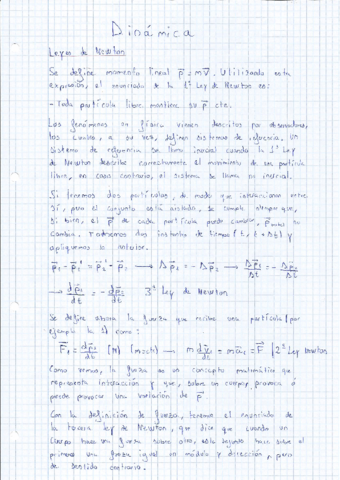 Dinámica
Leyes de Newton
Se define momento lineal p⃗ = mv⃗. Utilizando esta
expresión, el enunciado de la 1ª Ley de Newton es:
- Toda partícula libre mantiene su p⃗ cte.
Los fenómenos en física vienen descritos por observadores,
los cuales, a su vez, definen sistemas de referencia. Un
sistema de referencia se llama inercial cuando la 1ª Ley
de Newton describe correctamente el movimiento de una partícula
libre, en caso contrario, el sistema se llama no inercial.
Si tenemos dos partículas, de modo que interaccionan entre
sí, pero el conjunto está aislado, se cumple siempre que,
si bien, el p⃗ de cada partícula puede cambiar, p⃗ no
cambia. Tomemos dos instantes de tiempo (t, t+Δt) y
apliquemos lo anterior.
p⃗₁ - p⃗₁' = p⃗₂' - p⃗₂ → Δp⃗₁ = -Δp⃗₂ → Δp⃗₁/Δt = -Δp⃗₂/Δt
→ dp⃗₁/dt = -dp⃗₂/dt 3ª Ley de Newton
Se define ahora la fuerza que recibe una partícula (por
ejemplo la 1) como:
F⃗₁ = dp⃗₁/dt [N] (m=cte) → m dv⃗₁/dt = ma⃗₁ = F⃗ | 2ª Ley Newton
Como vemos, la fuerza es un concepto matemático que
representa interacción y que, sobre un cuerpo, provoca ó
puede provocar una variación de p⃗.
Con la definición de fuerza, tenemos el enunciado de
la tercera ley de Newton, que dice que cuando un
cuerpo hace una fuerza sobre otro, este segundo hace sobre el
primero una fuerza igual en módulo y dirección, pero
de sentido contrario.